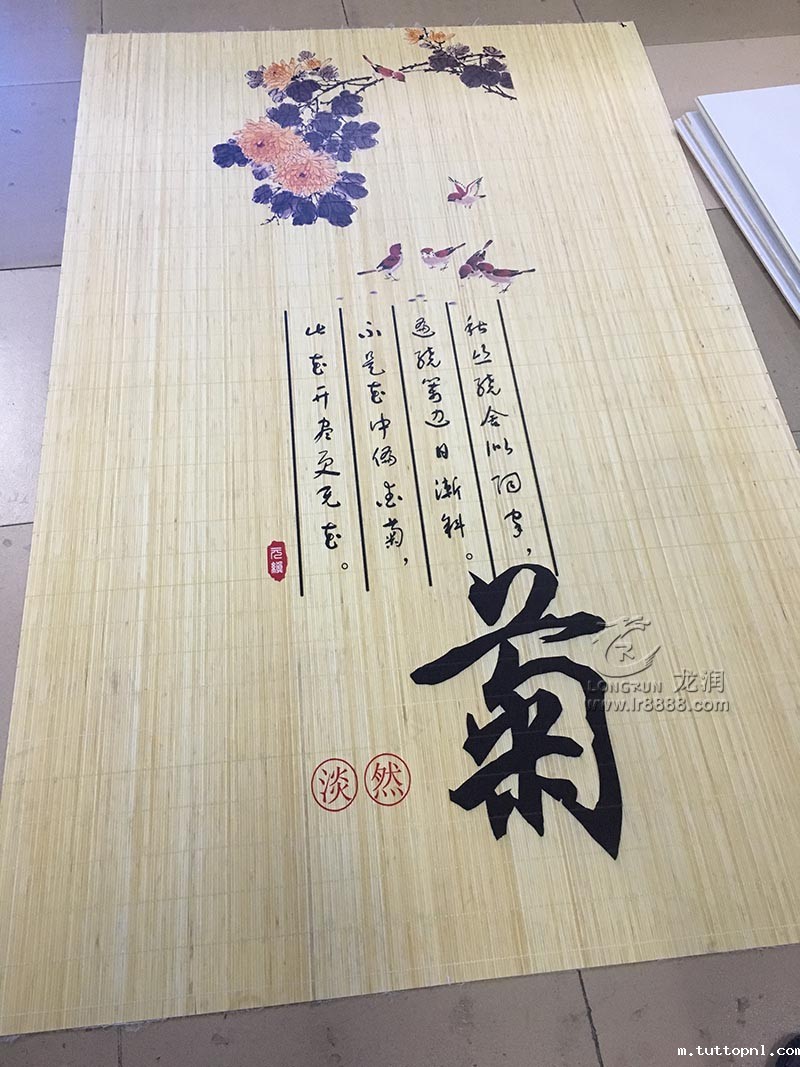 秋丝绕舍似陶家，
遍绕篱边日渐斜。
不是花中偏爱菊，
此花开尽更无花。
元稹
菊
淡然
LONGRUN 龙润
www.lr8888.com
m.tuttopnl.com